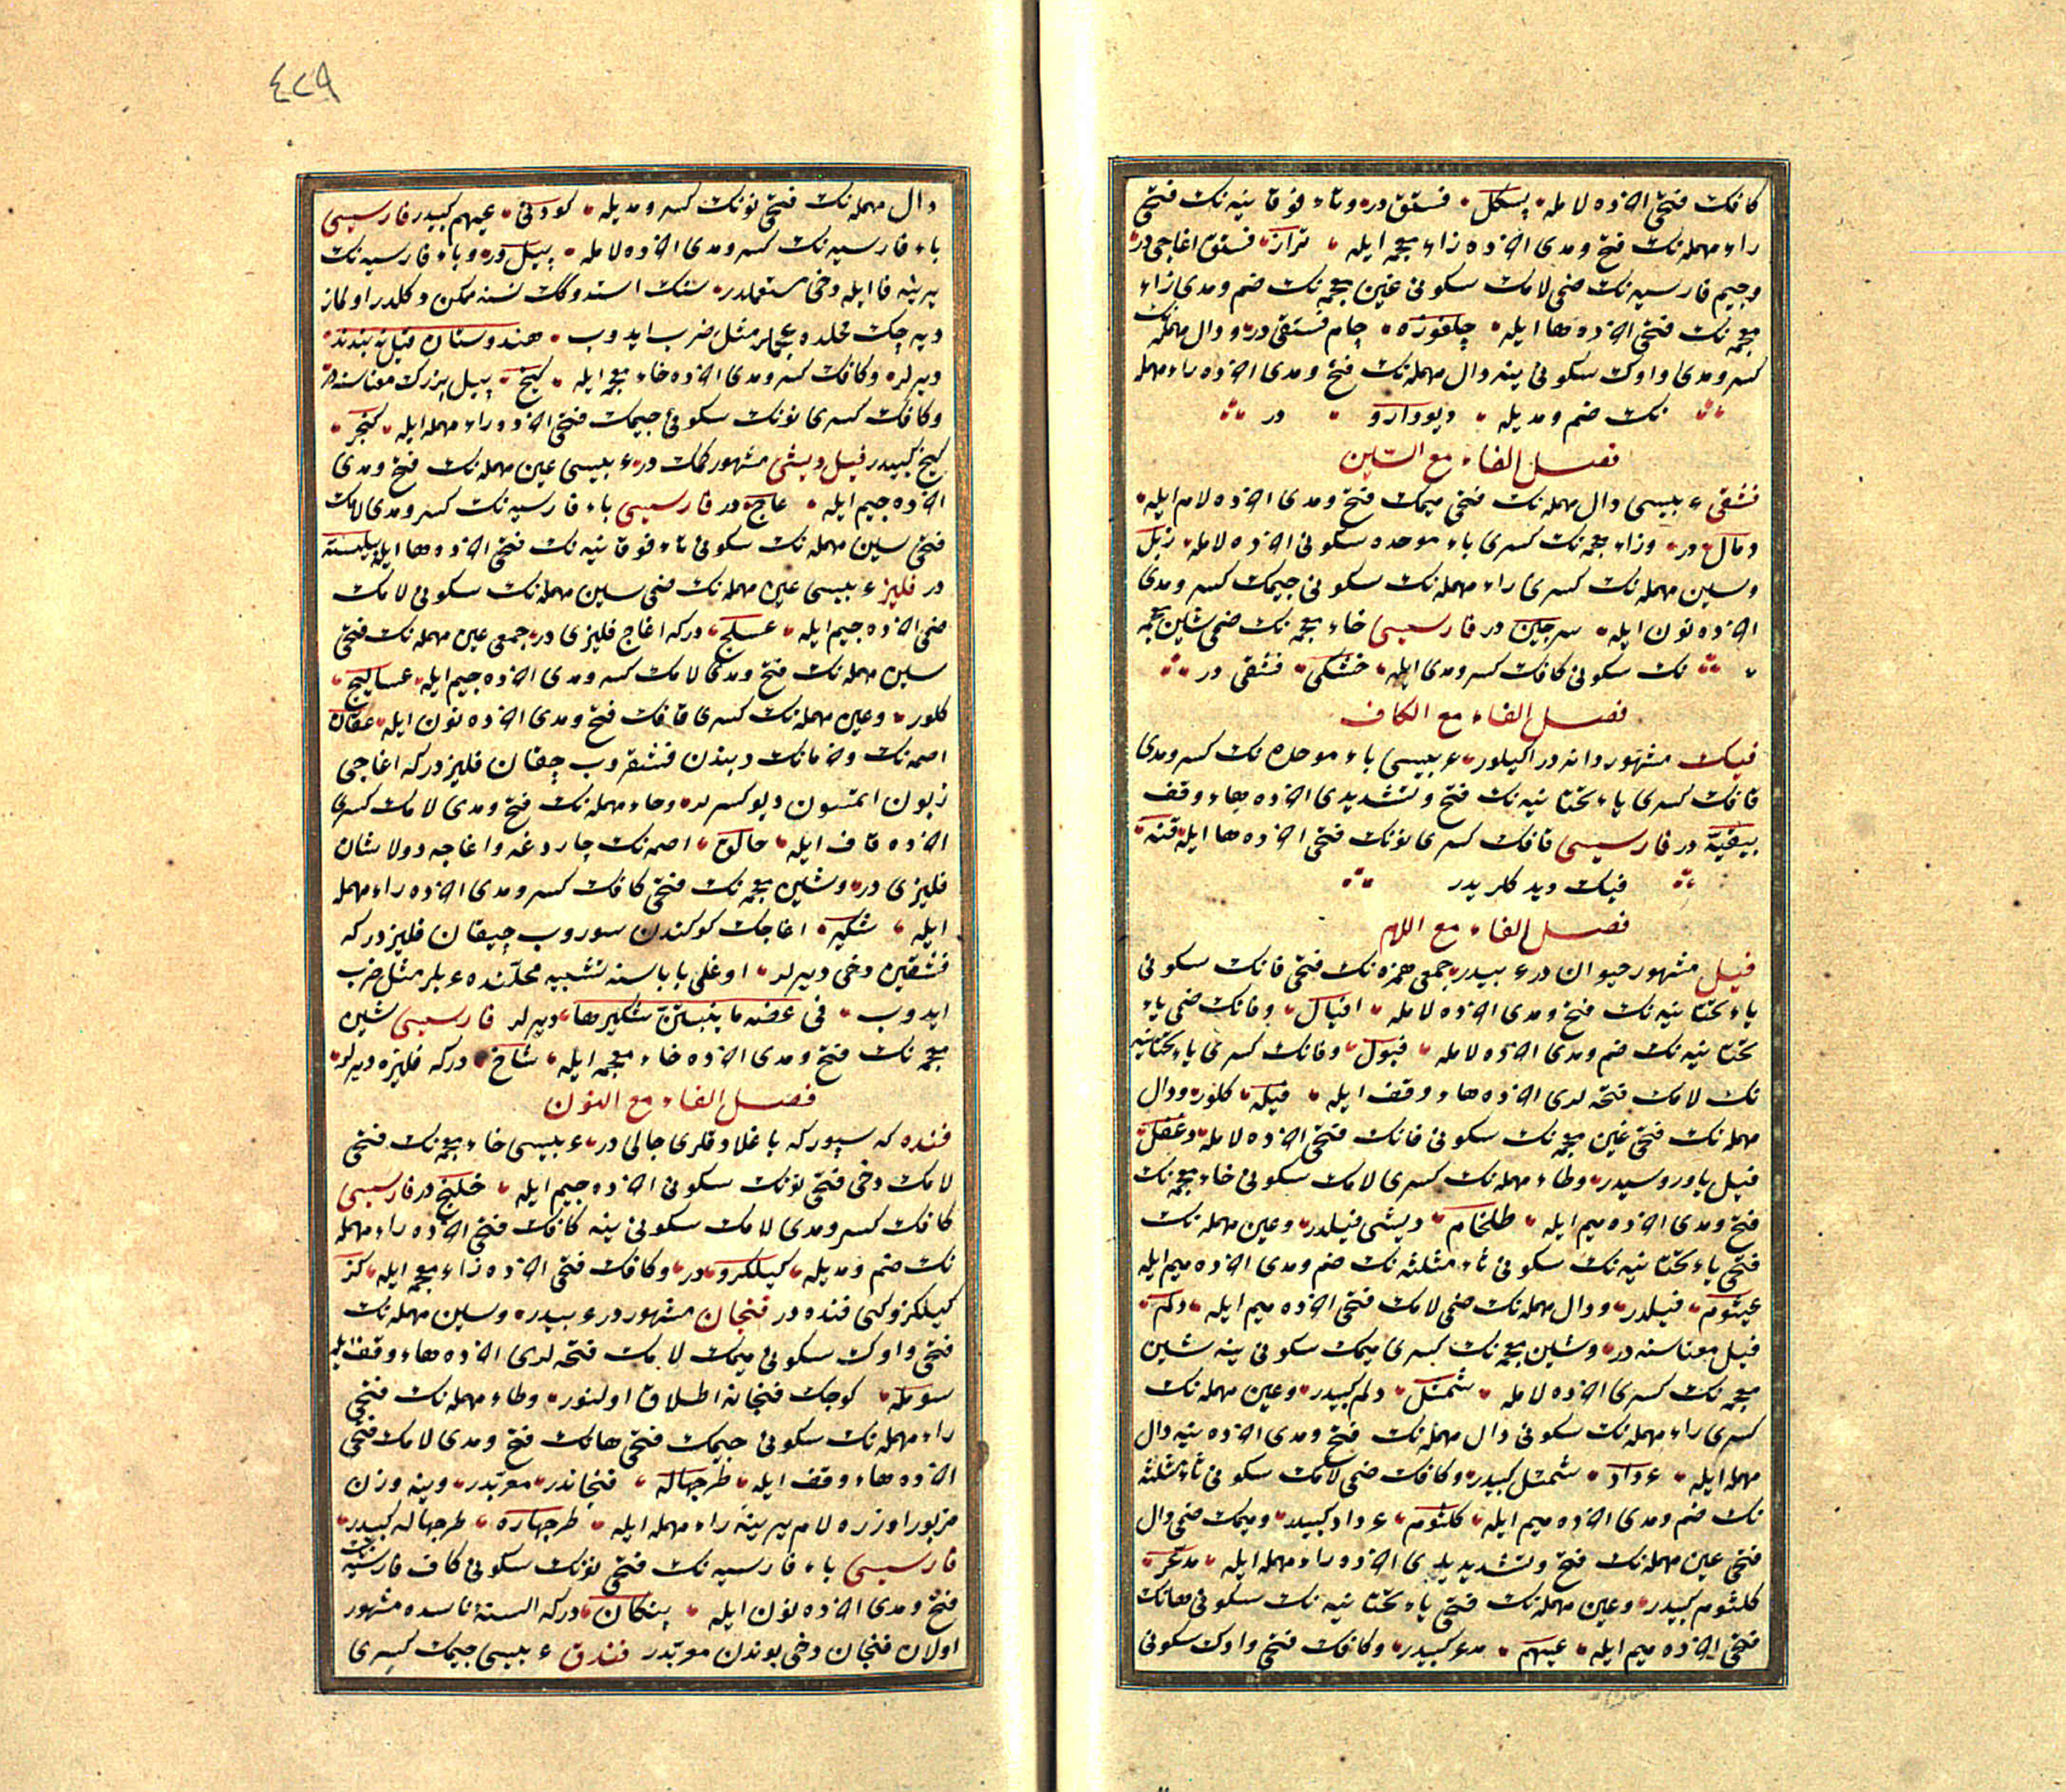 كافك فتحى اخرده لامله بسكل فستق در وتاء فوقانيه نك فتحى
راء مهمله نك فتح ومدى اخرده زاء معجمه ايله تراز فستق اغاجى در
وجيم فارسيه نك ضمى لامك سكونى غين معجمه نك ضم ومدى زاء
معجمه نك فتحى اخرده ها ايله چلغوزه چام فستقى در ودال مهمله نك
كسر ومدى واوك سكونى ينه دال مهمله نك فتح ومدى اخرده راء مهمله
نك ضم ومديله ديودارو در
فصل الفاء مع الشين
فشقى عربيسى دال مهمله نك فتحى ميمك فتح ومدى اخرده لام ايله
دمال در وزاء معجمه نك كسرى باء موحده سكونى اخرده لامله زبل
وسين مهمله نك كسرى راء مهمله نك سكونى جيمك كسر ومدى
اخرده نون ايله سرجين در فارسيسى خاء معجمه نك ضمى شين معجمه
نك سكونى كافك كسر ومدى ايله خشكى فشقى در
فصل الفاء مع الكاف
فيك مشهور دانه در اكيلور عربيسى باء موحده نك كسر ومدى
قافك كسرى ياء تحتانيه نك فتح وتشديدى اخرده هاء وقف
بيقيه در فارسيسى قافك كسرى نونك فتحى اخرده ها ايله قنه
فيك ديدكلريدر
فصل الفاء مع اللام
فيل مشهور حيوان در عربيدر جمعى همزه نك فتحى فانك سكونى
ياء تحتانيه نك فتح ومدى اخرده لامله افيال وفانك ضمى ياء
تحتانيه نك ضم ومدى اخرده لامله فيول وفانك كسرى ياء تحتانيه
نك لامك فتحه لرى اخرده هاء وقف ايله فيله كلور ودال
مهمله نك فتحى غين معجمه نك سكونى فانك فتحى اخرده لامله دغفل
فيل ياوروسيدر وطاء مهمله نك كسرى لامك سكونى خاء معجمه نك
فتح ومدى اخرده ميم ايله طلخام ديشى فيلدر وعين مهمله نك
فتحى ياء تحتانيه نك سكونى ثاء مثلثه نك ضم ومدى اخرده ميم ايله
عيثوم فيلدر ودال مهمله نك ضمى لامك فتحى اخرده ميم ايله دلم
فيل معناسنه در وشين معجمه نك كسرى ميمك سكونى ينه شين
معجمه نك كسرى اخرده لامله شمشل دلم كبيدر وعين مهمله نك
كسرى راء مهمله نك سكونى دال مهمله نك فتح ومدى اخرده ينه دال
مهمله ايله عرداد شمشل كبيدر وكافك ضمى لامك سكونى ثاء مثلثه
نك ضم ومدى اخرده ميم ايله كلثوم عرداد كبيدر وميمك ضمى دال
فتحى عين مهمله نك فتح وتشديديله اخرده راء مهمله ايله مدعر
كلثوم كبيدر وعين مهمله نك فتحى ياء تحتانيه نك سكونى هانك
فتحى اخرده ميم ايله عيهم مدعر كبيدر وكافك فتحى واوك سكونى
٤٢٩
دال مهمله نك فتحى نونك كسر ومديله كودنى عيهم كبيدر فارسيسى
باء فارسيه نك كسر ومدى اخرده لامله پيل در وباء فارسيه نك
يرينه فا ايله دخى مستعملدر
ديه جك محلده عجملر مثل ضرب ايدوب هندوستان
ديرلر وكافك كسر ومدى اخرده خاء معجمه ايله كيخ پيل بزرك معناسنه در
وكافك كسرى نونك سكونى جيمك فتحى اخرده راء مهمله ايله كنجر
كيخ كبيدر فيل ديشى مشهور كمك در عربيسى عين مهمله نك فتح ومدى
اخرده جيم ايله عاج در فارسيسى باء فارسيه نك كسر ومدى لامك
فتحى سين مهمله نك سكونى تاء فوقانيه نك فتحى اخرده ها ايله پيلسته
در فليز عربيسى عين مهمله نك ضمى سين مهمله نك سكونى لامك
ضمى اخرده جيم ايله عسلج در كه اغاج فليزى در جمعى عين مهمله نك فتحى
سين مهمله نك فتح ومدى لامك كسر ومدى اخرده جيم ايله عساليج
كلور وعين مهمله نك كسرى قافك فتح ومدى اخرده نون ايله عقان
اصمه نك وخرمانك ديبندن فشقروب چقان فليزدر كه اغاجى
زبون ايتسون ديو كسرلر وحاء مهمله نك فتح ومدى لامك كسرى
اخرده قاف ايله حالق اصمه نك چارداغه واغاجه دولاشان
فليزى در وشين معجمه نك فتحى كافك كسر ومدى اخرده راء مهمله
ايله شكير اغاجك كوكندن سوروب چيقان فليزدر كه
فشقين دخى ديرلر اوغلى باباسنه تشبيه محلنده عربلر مثل ضرب
ايدوب فى عضه ما ينبتن شكيرها ديرلر فارسيسى شين
معجمه نك فتح ومدى اخرده خاء معجمه ايله شاخ در كه فليزه ديرلر
فصل الفاء مع النون
فنده كه سپوركه باغلادقلرى چالى در عربيسى خاء معجمه نك فتحى
لامك دخى فتحى نونك سكونى اخرده جيم ايله خلنج در فارسيسى
كافك كسر ومدى لامك سكونى ينه كافك فتحى اخرده راء مهمله
نك ضم ومديله كيلكرو در وكافك فتحى اخرده زاء معجمه ايله كز
كيلكرو كبى فنده در فنجان مشهوردر عربيدر وسين مهمله نك
فتحى واوك سكونى ميمك لامك فتحه لرى اخرده هاء وقف ايله
سومله كوچك فنجانه اطلاق اولنور وطاء مهمله نك فتحى
راء مهمله نك سكونى جيمك فتحى هانك فتح ومدى لامك فتحى
اخرده هاء وقف ايله طرجهاله فنجاندر معربدر وينه وزن
مزبور اوزره لام يرينه راء مهمله ايله طرجهاره طرجهاله كبيدر
فارسيسى باء فارسيه نك فتحى نونك سكونى كاف فارسيه نك
فتح ومدى اخرده نون ايله پنكان در كه السنهٔ ناسده مشهور
اولان فنجان دخى بوندن معربدر فندق عربيسى جيمك كسرى